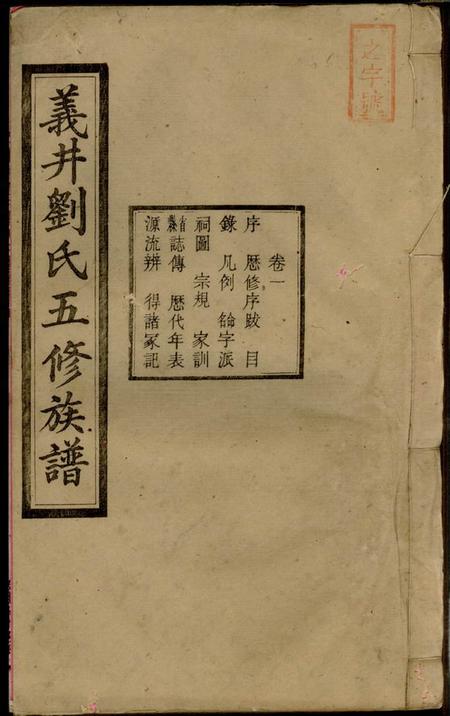 之字號
卷一
序 歷修序跋 目
錄 凡例 字派
祠圖 宗規 家訓
誌傳 歷代年表
源流辨 得諸冢記
義井劉氏五修族譜